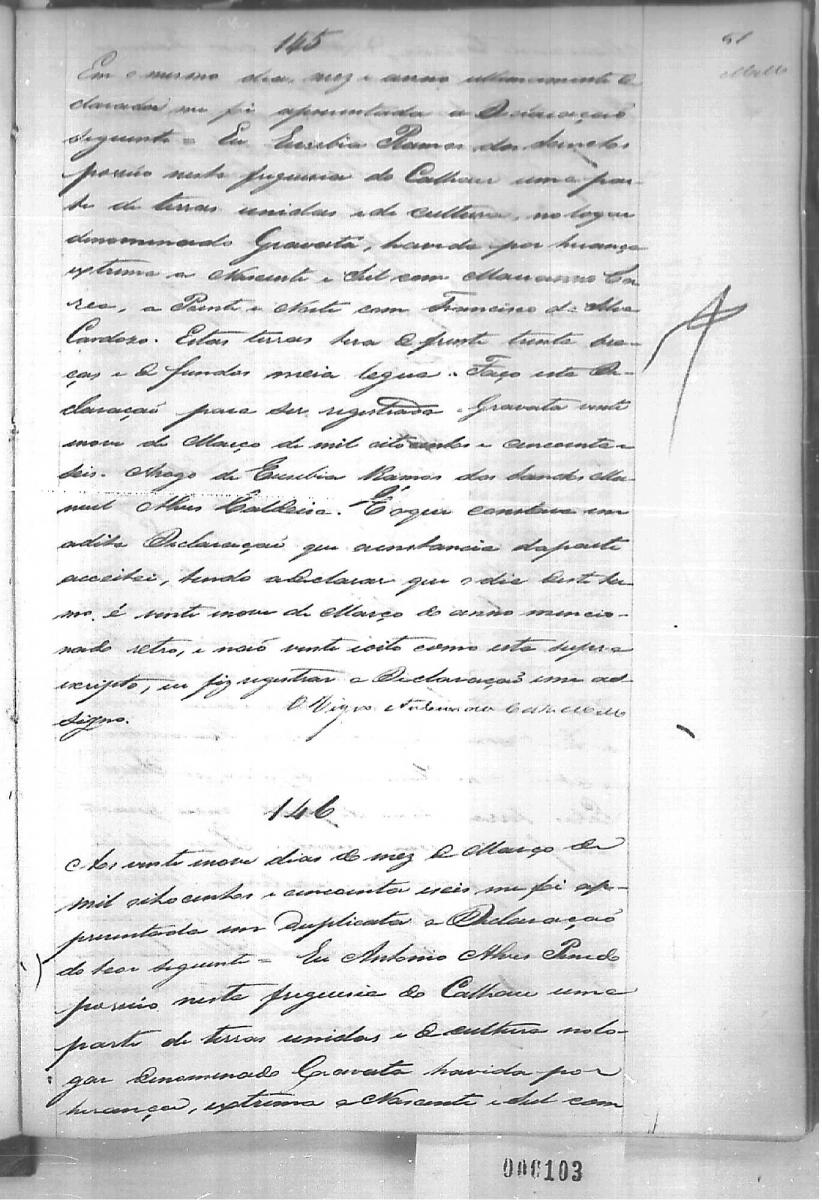 145
51
Mello
Em o mesmo dia, mez e anno ultimamente de
clarados me foi apresentada a Declaração
seguinte = Eu Eusebia Ramos dos Santos
possúo nesta freguesia do Calhau uma par-
te de terras unidas e de cultura, no logar
denominado Gravatá, havida por herança
extrema a Nascente e Sul com Marianno Co-
rea, a Poente e Norte com Francisco da Silva
Cardozo. Estas terras tera de frente trinta bra-
ças e de fundos meia legua. Faço esta De-
claração para ser registrada. Gravata vinte
nove de Março de mil oitocentos e cincoenta e
seis. Arogo de Eusebia Ramos dos Santos Ma-
nuel Alves Caldeira. É o que constava em
a dita Declaração que a instancia da parte
acceitei, tendo a declarar que o dia deste ter-
mo é vinte nove de Março do anno mencio-
nado retro, e naõ vinte e oito como esta supra
escripto, eu fiz registrar a Declaração em e as-
signo.
O Vigro
146
Aos vinte nove dias do mez de Março de
mil oitocentos e cincoenta e seis me foi ap-
presentada em duplicata a Declaração
do teor seguinte = Eu Antonio Alves Penedo
possúo nesta freguesia do Calhau uma
parte de terras unidas e de cultura no lo-
gar denominado Gravata havida por
herança, extrema a Nascente e Sul com
000103